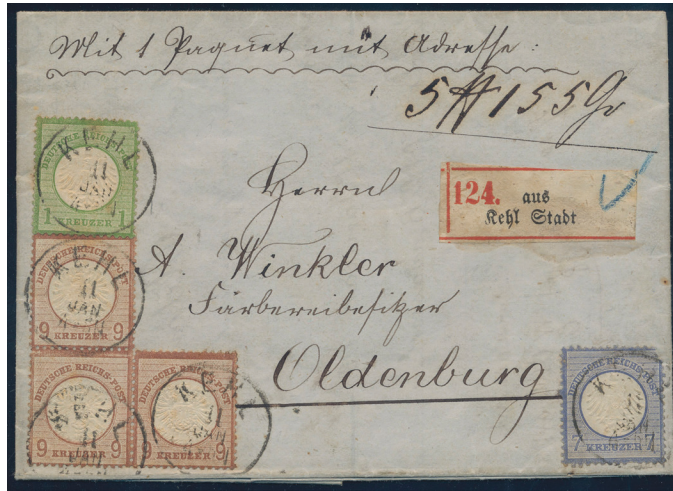 Mit 1 Paquet mit Adresse:
5 ℔ 155 Gr
Herrn
A. Winkler
Färbereibesitzer
Oldenburg
124. aus
Kehl Stadt
DEUTSCHE REICHS-POST
1 1
KREUZER
KEHL
11
JAN
DEUTSCHE REICHS-POST
9 9
KREUZER
KEHL
11
JAN
DEUTSCHE REICHS-POST
9 9
KREUZER
KEHL
11
DEUTSCHE REICHS-POST
9 9
KREUZER
KEHL
DEUTSCHE REICHS-POST
7 7
KREUZER